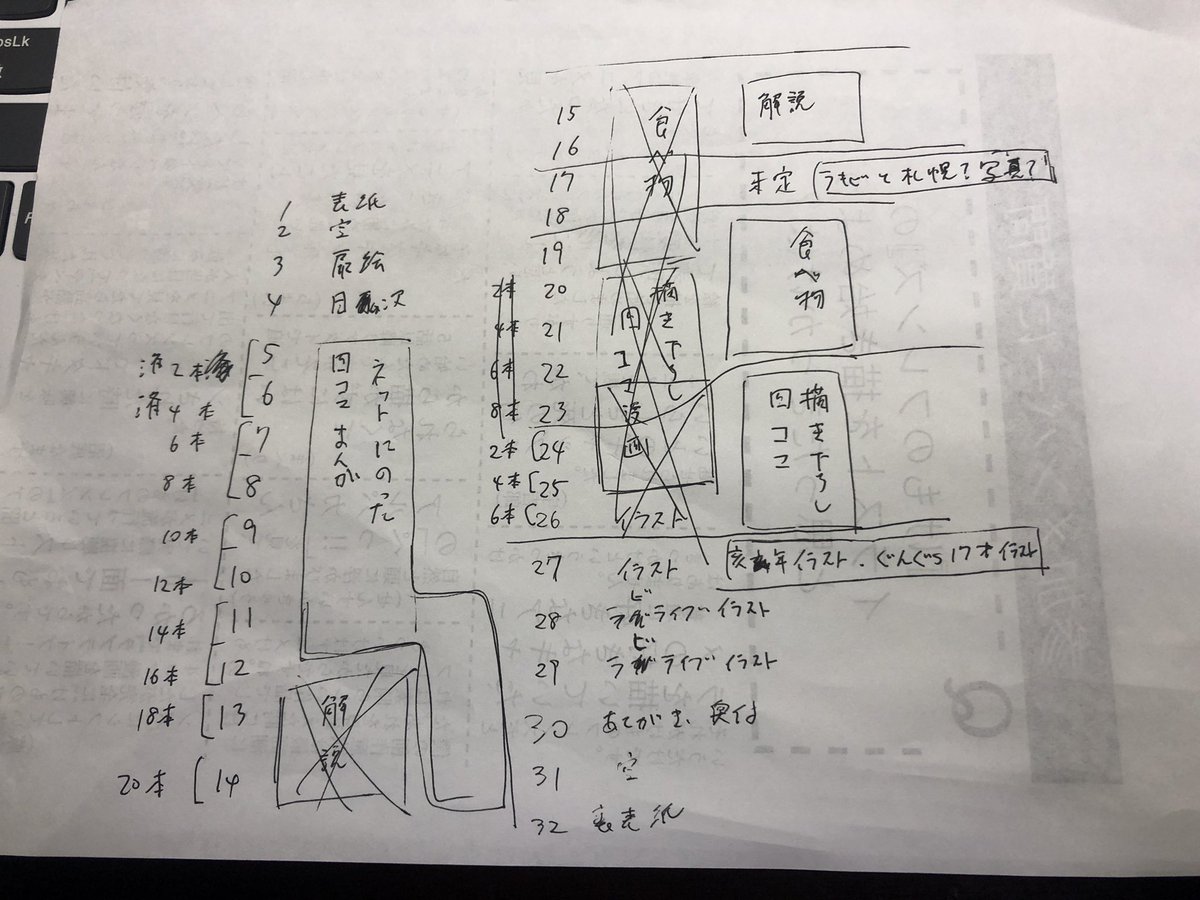 1 表紙
2 空
3 扉絵
4 目次
済 2本 5
済 4本 6
6本 7
8本 8
10本 9
12本 10
14本 11
16本 12
18本 13
20本 14
ネットにのった
四コマまんが
解説
15
16
17
18
19
2本 20
4本 21
6本 22
8本 23
2本 24
4本 25
6本 26
食べ物
描き下ろし
四コマ
漫画
イラスト
解説
未定
札幌?写真で
食べ物
描き下ろし
四コマ
27 イラスト
亥年イラスト、ぐんぐら17才イラスト
28 ラビライブイラスト
29 ラビライブイラスト
30 あとがき、奥付
31 空
32 裏表紙